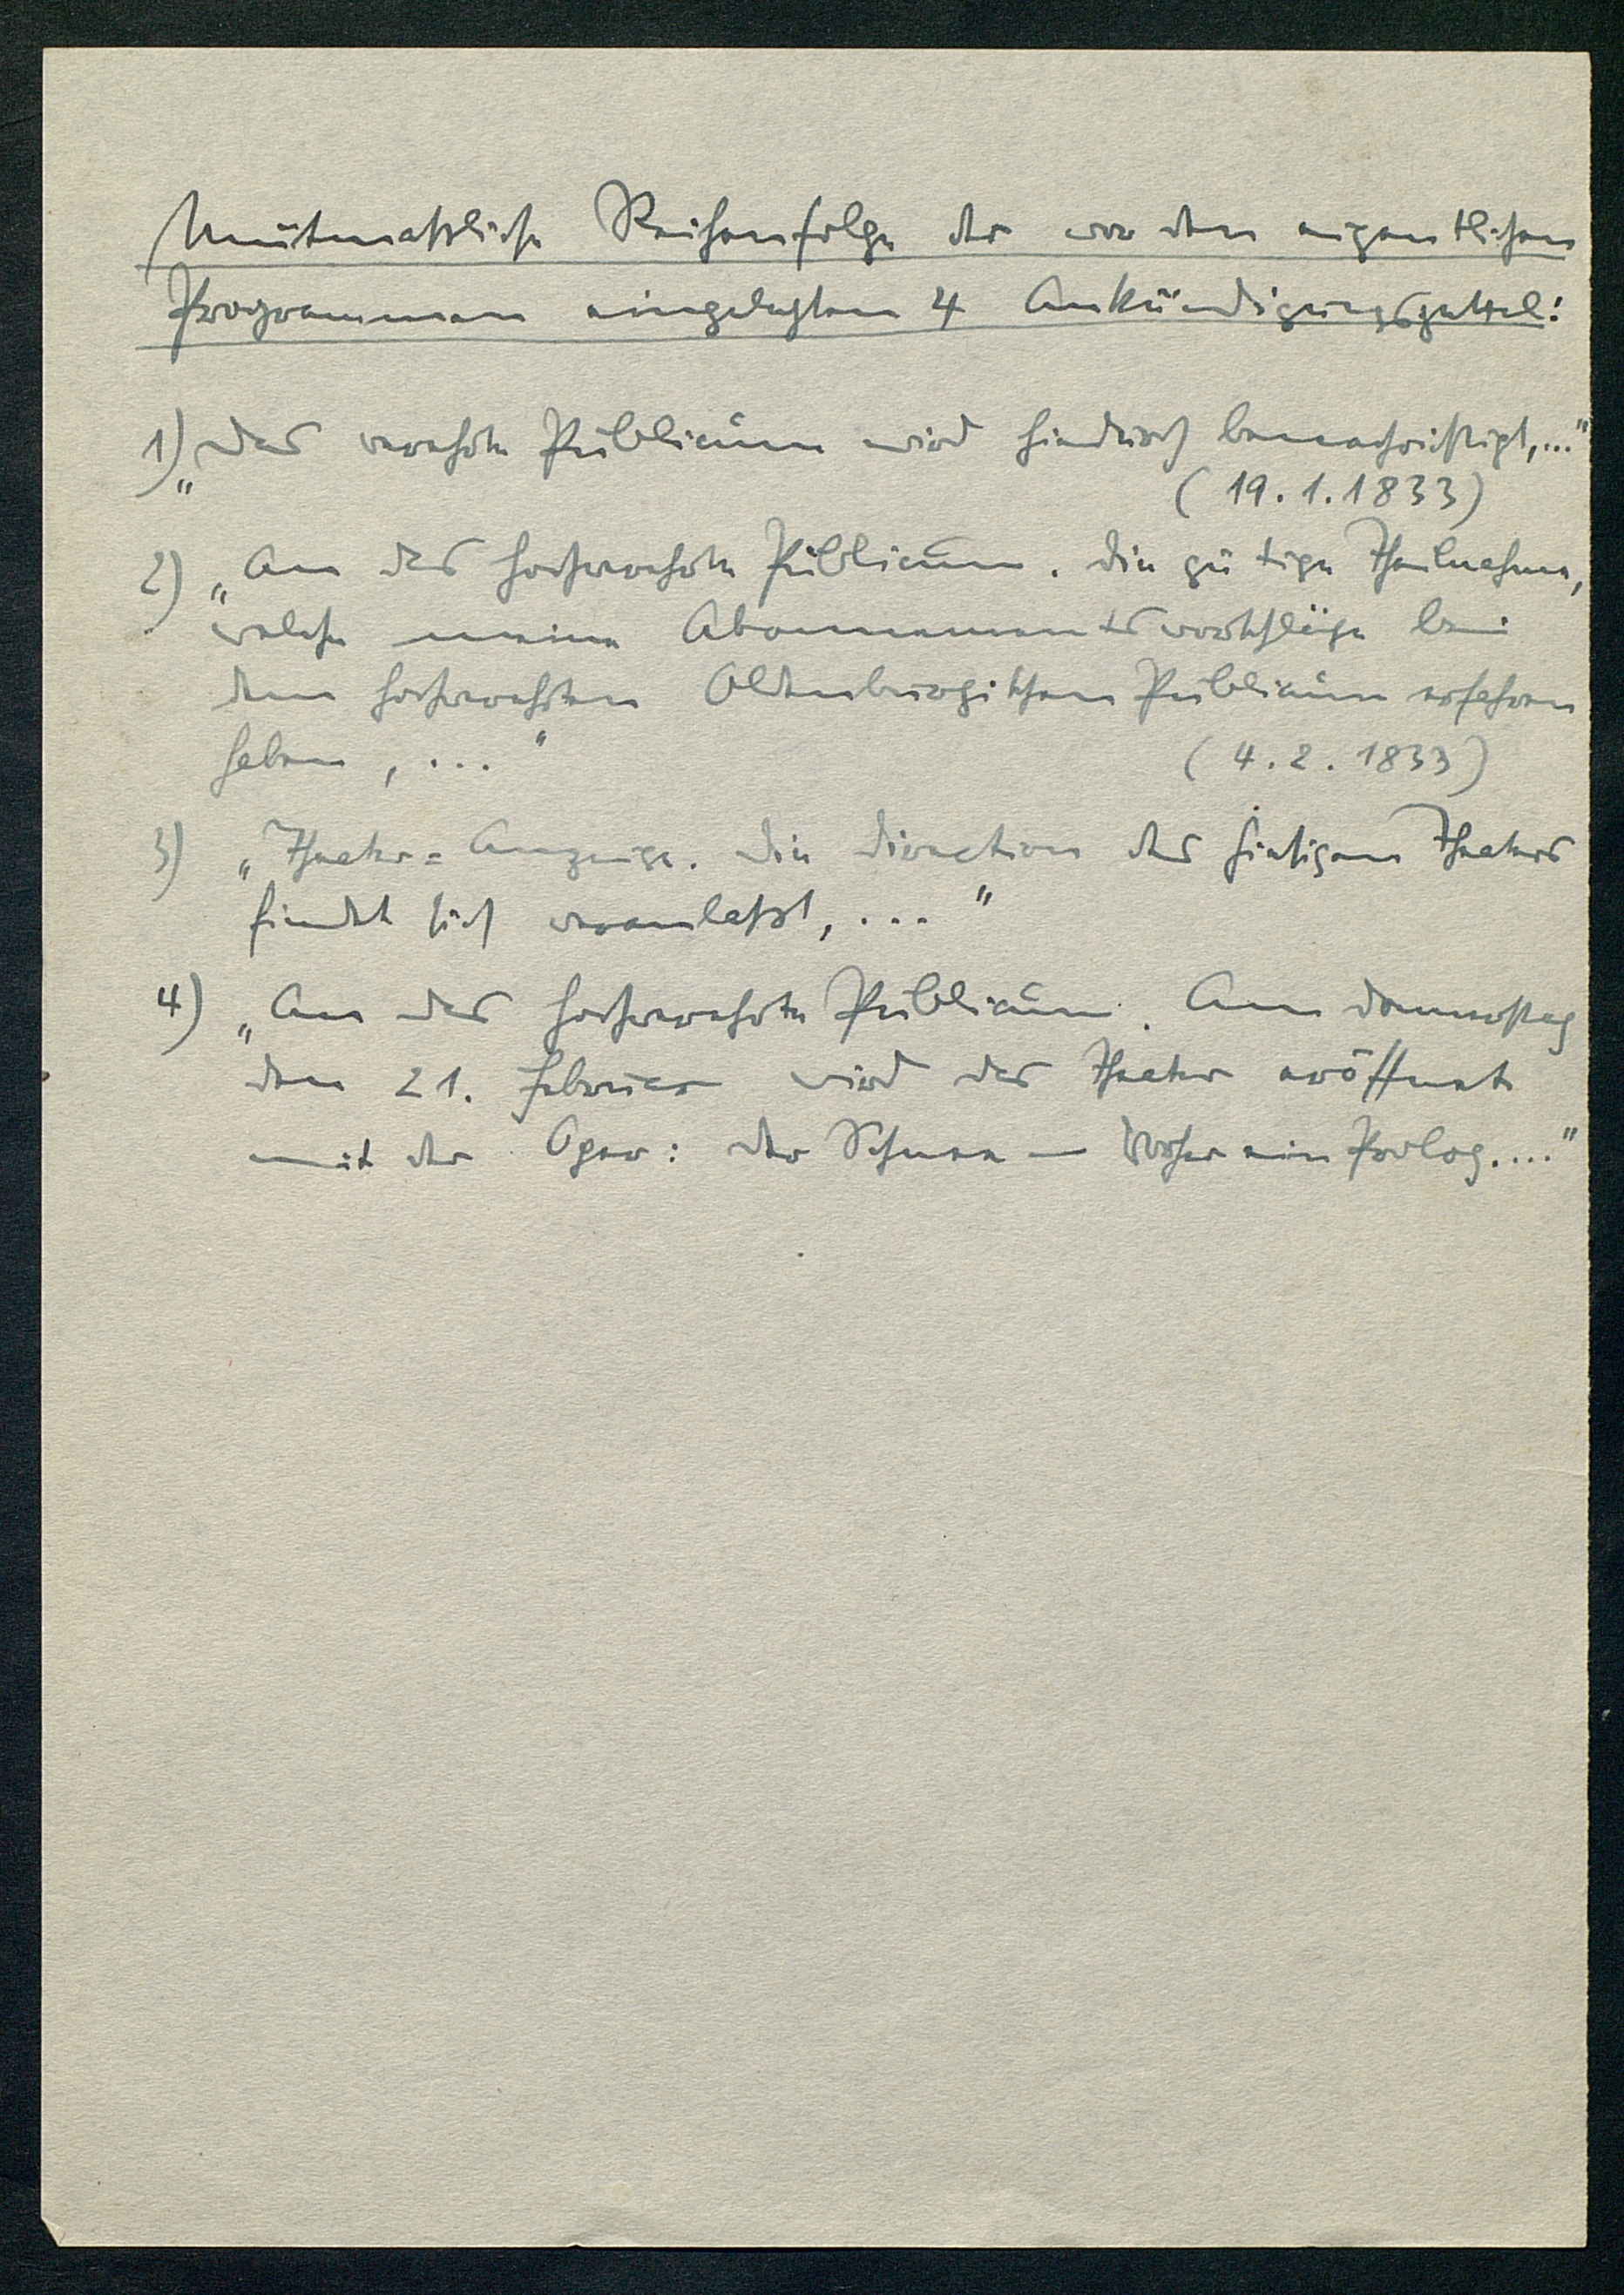 Mutmaßliche Reihenfolge der vor den eigentlichen
Programmen eingelegten 4 Ankündigungszettel:
1) „Das verehrte Publicum wird hiedurch benachrichtigt,..."
(19.1.1833)
2) „An das hochverehrte Publicum. Die gütige Theilnahme,
welche meine Abonnementsvorschläge bei
dem hochverehrten Oldenburgischen Publicum erfahren
haben, ..."
(4.2.1833)
3) „Theater=Anzeige. Die Direction des hiesigen Theaters
findet sich veranlaßt, ..."
4) „An das hochverehrte Publicum. Am Donnerstag
den 21. Februar wird das Theater eröffnet
mit der Oper: Der Schnee — Vorher ein Prolog...."